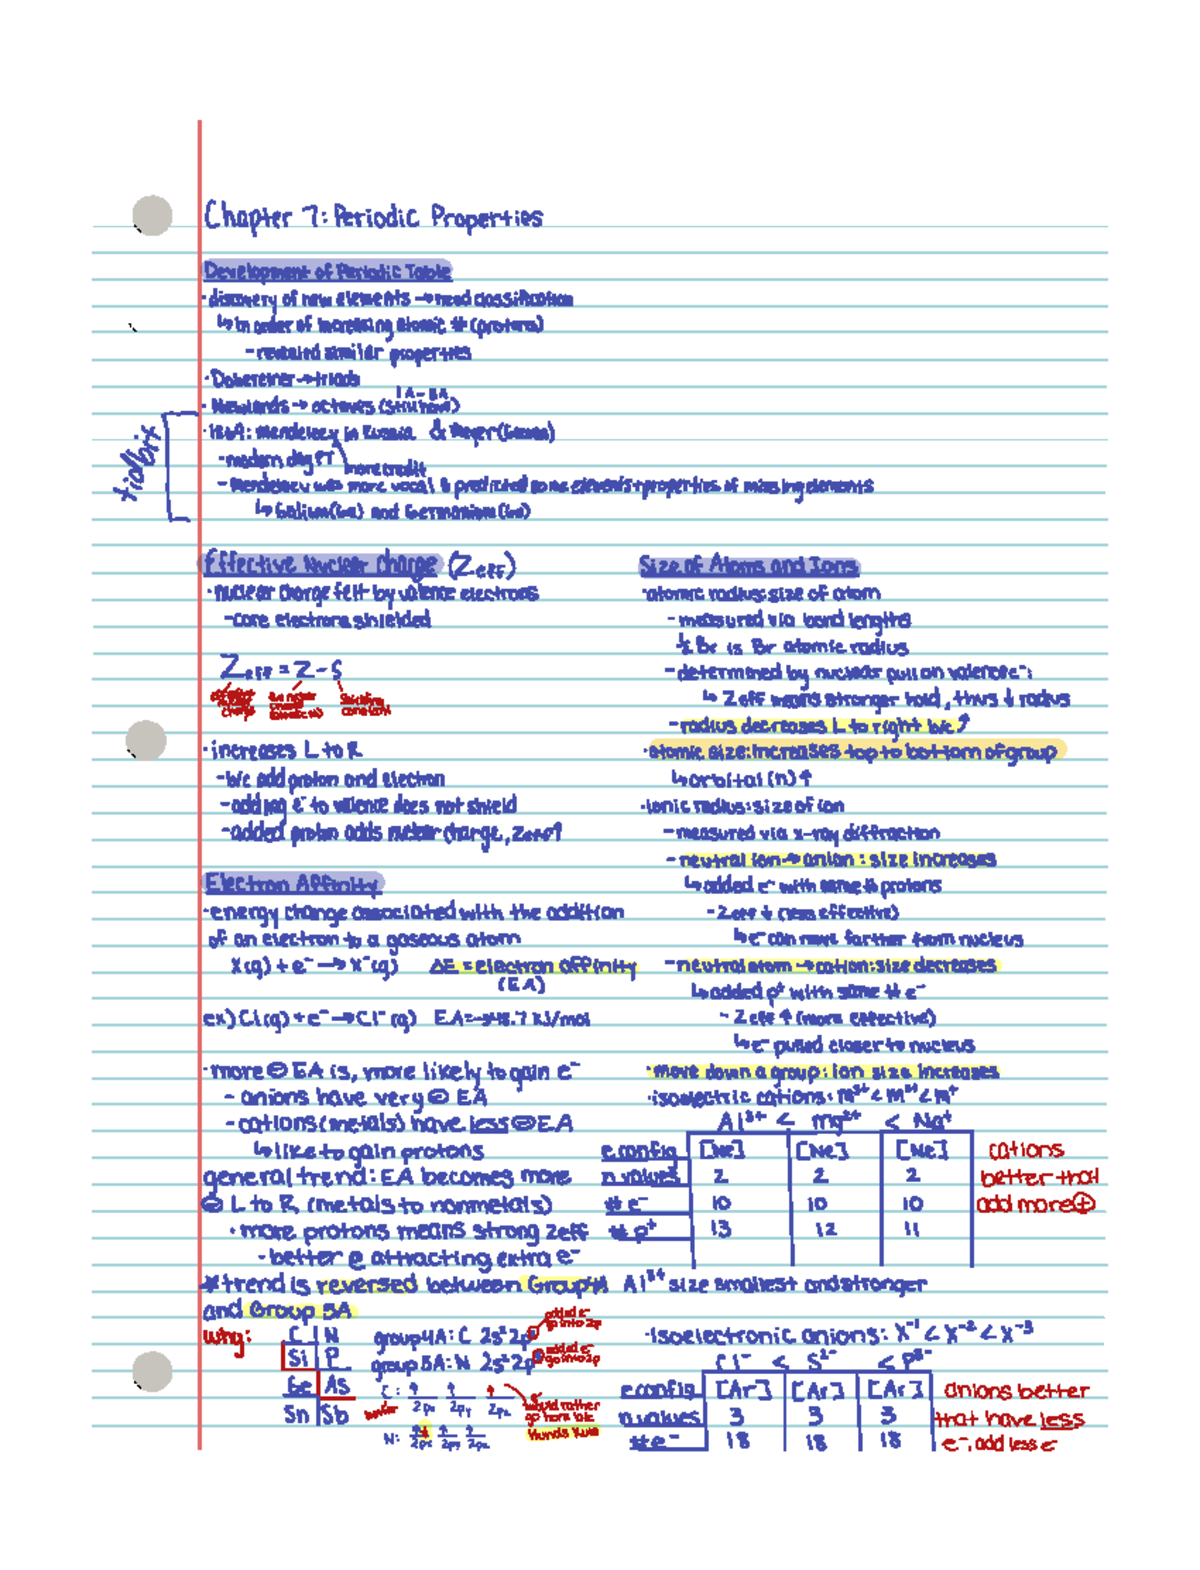 Chapter 7: Periodic Properties
Development of Periodic Table
· discovery of new elements → need classification
↳ in order of increasing atomic # (protons)
- revealed similar properties
· Dobereiner → triads
1A - 8A
· Newlands → octaves
· 1869: Mendeleev in Russia & Meyer (German)
- modern day PT
more credit
tidbit
- Mendeleev was more vocal & predicted some elements + properties of missing elements
↳ Galium (Ga) and Germanium (Ge)
Effective Nuclear Charge (Zeff)
· nuclear charge felt by valence electrons
- core electrons shielded
Zeff = Z - S
· increases L to R
- b/c add proton and electron
- adding e⁻ to valence does not shield
- added proton adds nuclear charge, Zeff↑
Electron Affinity
· energy change associated with the addition
of an electron to a gaseous atom
X(g) + e⁻ → X⁻(g) ΔE = electron affinity
(EA)
ex) Cl(g) + e⁻ → Cl⁻(g) EA = kJ/mol
· more ⊖ EA is, more likely to gain e⁻
- anions have very ⊖ EA
- cations (metals) have less ⊖ EA
↳ like to gain protons
general trend: EA becomes more
⊖ L to R (metals to nonmetals)
· more protons means strong Zeff
- better @ attracting extra e⁻
* trend is reversed between Group
and Group 5A
why:
C N
Si P
Ge As
Sn Sb
group 4A: C 2s²2p²
added e⁻ go into 2p
group 5A: N 2s²2p³
added e⁻ go into 2p
C: ↑ ↑ ↑
2px 2py 2pz
would rather
go here b/c
Hunds Rule
N:
2px 2py 2pz
Size of Atoms and Ions
· atomic radius: size of atom
- measured via bond lengths
½ Br is Br atomic radius
- determined by nuclear pull on valence e⁻:
↳ Zeff means stronger hold, thus ↓ radius
- radius decreases L to right b/c ↑
· atomic size: increases top to bottom of group
↳ orbital (n) ↑
· ionic radius: size of ion
- measured via x-ray diffraction
- neutral ion → anion: size increases
↳ added e⁻ with same # protons
- Zeff ↓ (less effective)
↳ e⁻ can move farther from nucleus
- neutral atom → cation: size decreases
↳ added p⁺ with same # e⁻
- Zeff ↑ (more effective)
↳ e⁻ pulled closer to nucleus
· move down a group: ion size increases
· isoelectric cations: M³⁺ < M²⁺ < M⁺
Al³⁺ < Mg²⁺ < Na⁺
e config [Ne] [Ne] [Ne]
n values 2 2 2
# e⁻ 10 10 10
# p⁺ 13 12 11
cations
better that
add more ⊕
Al³⁺ size smallest and stronger
· Isoelectronic anions: X⁻¹ < X⁻² < X⁻³
Cl⁻ < S²⁻ < P³⁻
e config [Ar] [Ar] [Ar]
n values 3 3 3
# e⁻ 18 18 18
anions better
that have less
e⁻, add less e⁻